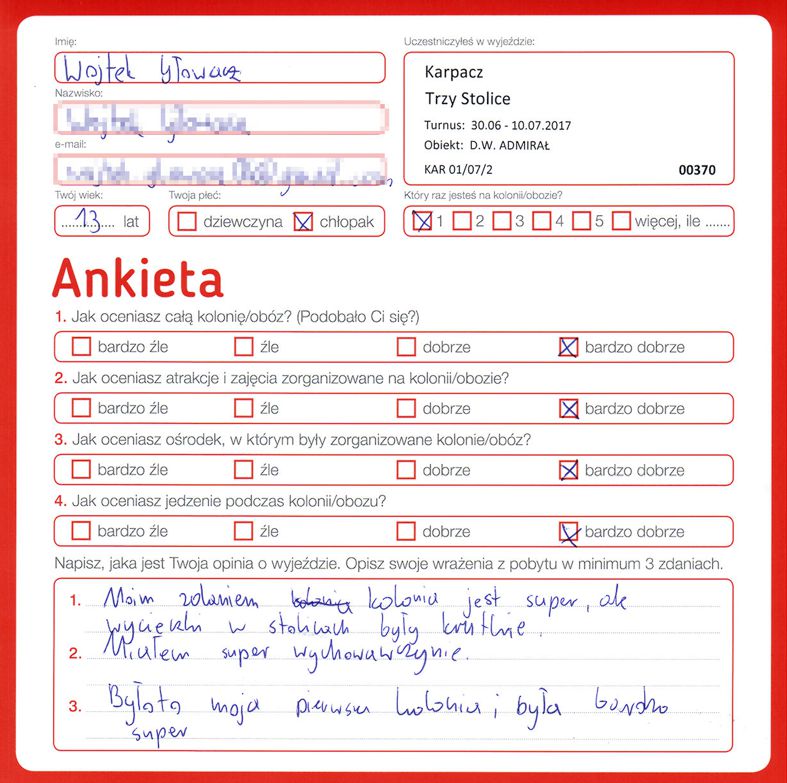 Imię:
Wojtek Głowacz
Nazwisko:
e-mail:
Twój wiek:
13 lat
Twoja płeć:
dziewczyna chłopak
Uczestniczyłeś w wyjeździe:
Karpacz
Trzy Stolice
Turnus: 30.06 - 10.07.2017
Obiekt: D.W. ADMIRAŁ
KAR 01/07/2 00370
Który raz jesteś na kolonii/obozie?
1 2 3 4 5 więcej, ile .......
Ankieta
1. Jak oceniasz całą kolonię/obóz? (Podobało Ci się?)
bardzo źle źle dobrze bardzo dobrze
2. Jak oceniasz atrakcje i zajęcia zorganizowane na kolonii/obozie?
bardzo źle źle dobrze bardzo dobrze
3. Jak oceniasz ośrodek, w którym były zorganizowane kolonie/obóz?
bardzo źle źle dobrze bardzo dobrze
4. Jak oceniasz jedzenie podczas kolonii/obozu?
bardzo źle źle dobrze bardzo dobrze
Napisz, jaka jest Twoja opinia o wyjeździe. Opisz swoje wrażenia z pobytu w minimum 3 zdaniach.
1. Moim zdaniem kolonia jest super, ale
wycieczki w stolicach były
2. Miałem super wychowawczynie.
3. Była to moja pierwsza kolonia i była bardzo
super